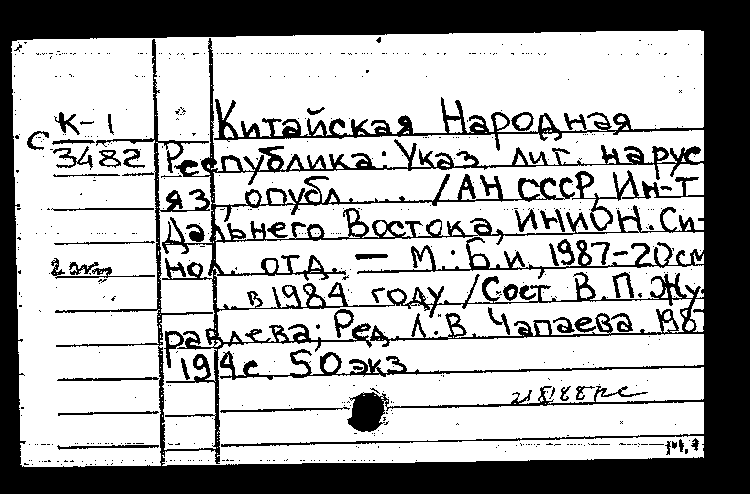 К-1 Китайская Народная
с 3482 Республика: Указ. лит. на рус
яз., опубл. .... /АН СССР, Ин-т
Дальнего Востока, ИНИОН. Си-
нол. отд. — М.: Б.и., 1987-20см
.. в 1984 году. /Сост. В.П. Жу-
равлева; Ред. Л.В. Чапаева. 198
194с. 50 экз.